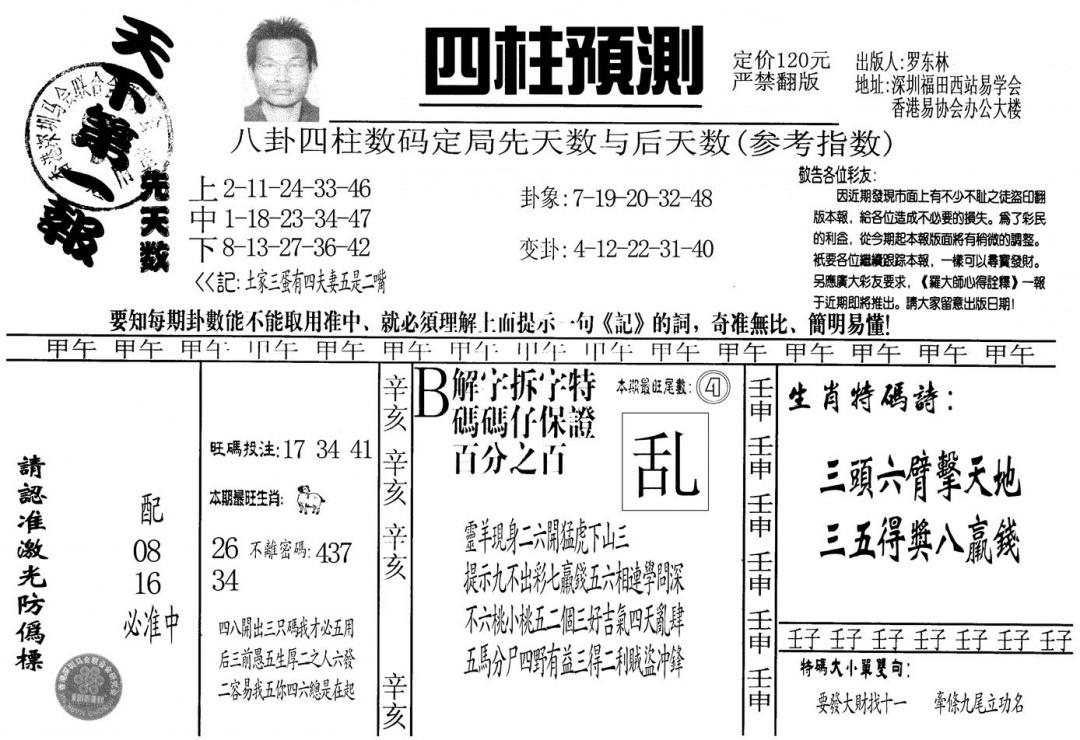 天下第一報
四柱預測
定价120元
严禁翻版
出版人:罗东林
地址:深圳福田西站易学会
香港易协会办公大楼
八卦四柱数码定局先天数与后天数(参考指数)
先天数
上 2-11-24-33-46
中 1-18-23-34-47
下 8-13-27-36-42
卦象:7-19-20-32-48
变卦:4-12-22-31-40
<<記:土家三蛋有四夫妻五是二嘴
敬告各位彩友:
因近期發現市面上有不少不耻之徒盜印翻
版本報,給各位造成不必要的損失。為了彩民
的利益,從今期起本報版面將有稍微的調整。
衹要各位繼續跟踪本報,一樣可以尋寶發財。
另應廣大彩友要求,《羅大師心得詮釋》一報
于近期即將推出。請大家留意出版日期!
要知每期卦數能不能取用准中、就必須理解上面提示一句《記》的詞,奇准無比、簡明易懂!
甲午 甲午 甲午 甲午 甲午 甲午 甲午 甲午 甲午 甲午 甲午 甲午 甲午 甲午 甲午
請認准激光防僞標
配
08
16
必准中
旺碼投注:17 34 41
本期最旺生肖:
26 不離密碼:437
34
四八開出三只碼我才必五用
后三前愚五生厚二之人六發
二容易我五你四六總是在起
辛亥
辛亥
辛亥
辛亥
B解字拆字特
碼碼仔保證
百分之百
本期最旺尾數:④
乱
靈羊現身二六開猛虎下山三
提示九不出彩七贏錢五六相連學問深
不六桃小桃五二個三好吉氣四天亂肆
五馬分尸四野有益三得二利賊盜冲鋒
壬申
壬申
壬申
壬申
壬申
壬申
生肖特碼詩:
三頭六臂擊天地
三五得獎八贏錢
壬子 壬子 壬子 壬子 壬子 壬子 壬子
特碼大小單雙句:
要發大財找十一 牽條九尾立功名